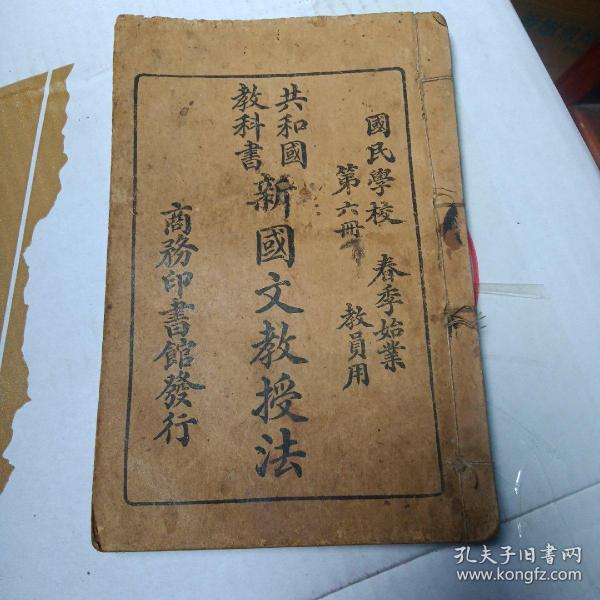 國民學校 春季始業
第六冊 教員用
共和國
教科書
新國文教授法
商務印書館發行
孔夫子旧书网
www.kongfz.com